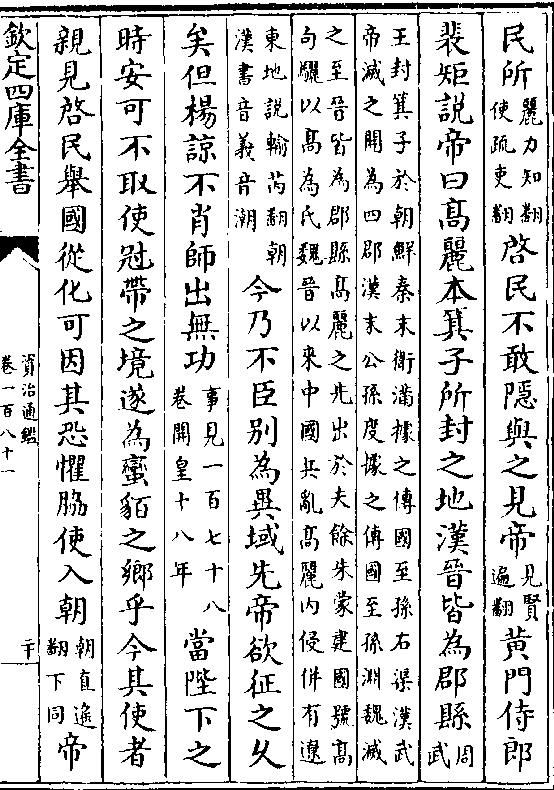 民所麗力知翻使疏吏翻啓民不敢隱與之見帝見賢遍翻黃門侍郎
裴矩說帝曰髙麗本箕子所封之地漢晉皆為郡縣周武
王封箕子於朝鮮秦末衛滿據之傳國至孫右渠漢武
帝滅之開為四郡漢末公孫度據之傳國至孫淵魏滅
之至晉皆為郡縣髙麗之先出於夫餘朱蒙建國號髙
句驪以髙為氏魏晉以來中國兵亂髙麗内侵併有遼
東地說輸芮翻朝漢書音義音潮今乃不臣別為異域先帝欲征之久
矣但楊諒不肖師出無功事見一百七十八卷開皇十八年當陛下之
時安可不取使冠帶之境遂為蠻貊之鄉乎今其使者
親見啓民舉國從化可因其恐懼脇使入朝朝直遙翻下同帝
欽定四庫全書
資治通鑑
卷一百八十一
二十